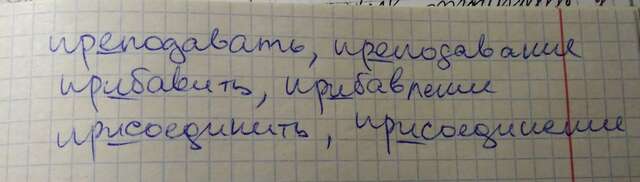 преподавать, преподавание
прибавить, прибавлении
присоединить, присоединении